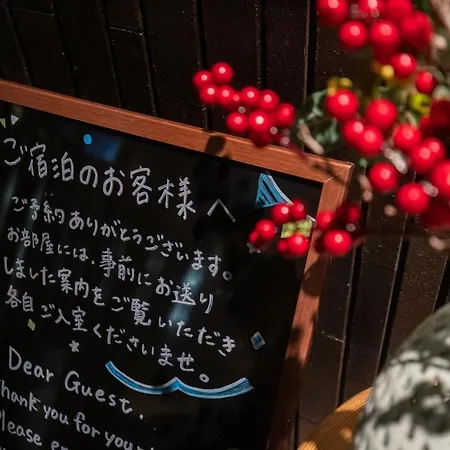 ご宿泊のお客様へ
ご予約ありがとうございます。
お部屋には、事前にお送り
しました案内をご覧いただき
各自ご入室くださいませ。
Dear Guest.
Thank you for your
Please